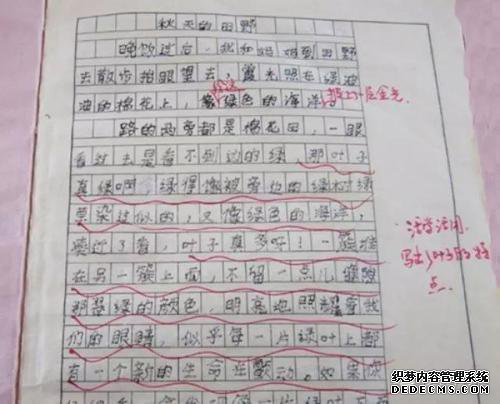 秋天的田野
晚饭过后，我和妈妈到田野
去散步抬眼望去，霞光照在绿油
油的棉花上，给绿色的海洋披上了一层金光。
路的两旁都是棉花田，一眼
看过去是看不到边的绿 那叶子
真绿啊 绿得像被旁边的绿树绿
草染过似的，又像绿色的海洋，
凑近了看，叶子真多呀！一簇堆
在另一簇上面，不留一点儿缝隙
那翠绿的颜色，明亮地照耀着我
们的眼睛，似乎每一片绿叶上都
有一个新的生命在颤动。如果你
活学活用，
写出了叶子的特
点。
博默文库内容管理系统
www.bomoer.com